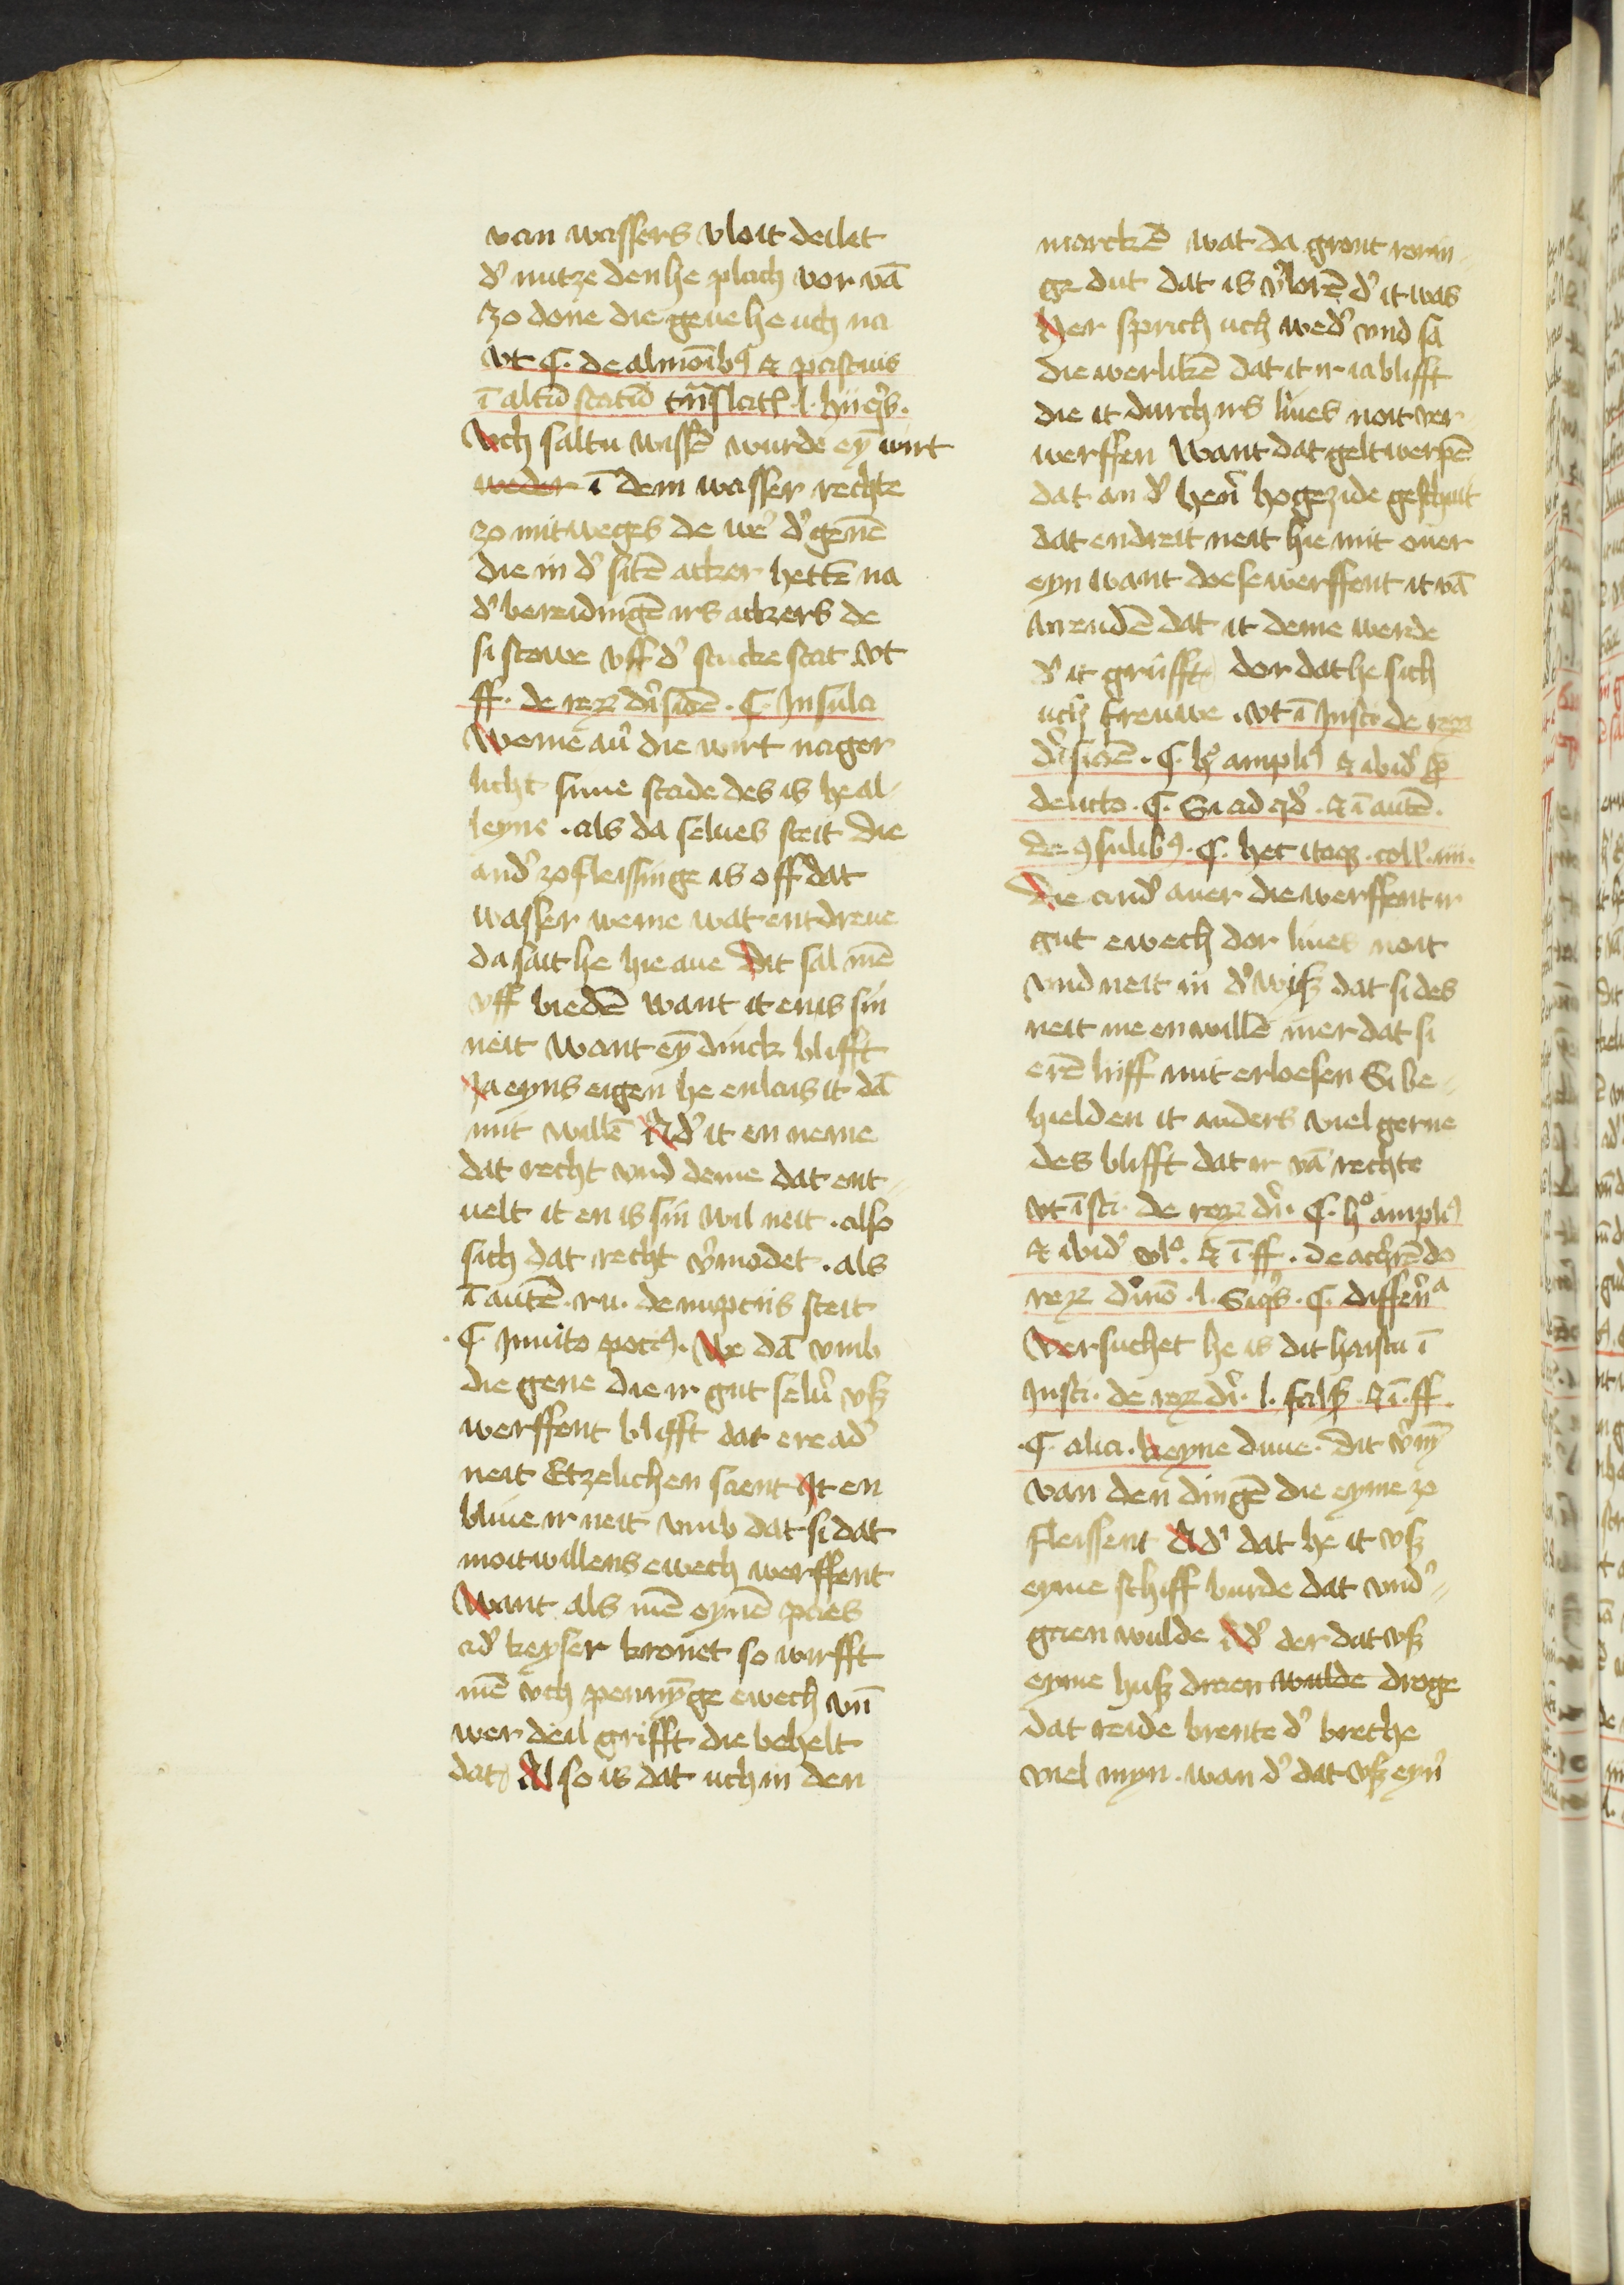 van wassers vloit deilet
d' nutze den he plach vor vā
zo done die geue he uch na
vt C. de almoīb9 & pascuis
ī altū statū trāslat' . l. hiiq's.
Vch saltu wissē wurde eȳ wirt
weder ī dem wasser rechte
zo mitweges de we' d' genē
die in d' sitē acker hettē na
d' bereidingē irs ackers de
si stowe vff d' stucke stat vt
ff. de reȝ diuisiōe . C. Insula
Weme au' die wirt nager
licht sime stade des is he al-
leyne . als da selues steit die
and' zofleissinge is off dat
wasser weme wat entdreue
da sait he hie aue Dit sal mē
vff biedē want it enis sin
neit Want eȳ dinck blifft
Ja eyns eigen he enlais it dā
mit willē Ad' it en neme
dat recht vnd deme dat ent-
uelt it en is sin wil neit . also
sich dat recht v'modet . als
ī autē . ru. de nuptiis steit
. C. Inuito pot9. We dā vmb
die gene die ir gut selu' vſz
werffent blifft dat ere ad'
neit Etzelichen saent It en
bliue ir neit vmb dat si dat
moitwillens ewech werffent
Want als mē eynē paes
ad' keyser kronet so wirfft
mē vch pennȳge ewech vn̄
wer deil grifft die behelt
dat Also is dat uch in den
marckē wat da gront rorin-
ge dut dat is v'lorē d' it was
Her sprich uch wed' vnd sa
die werlikē dat it ir ia blifft
die it durch irs liues noit ver
werffen Want dat gelt werpē
dat an d' hen' hogezide geschuit
dat endreit neit hie mit ouer
eyn want doe se werffent it vā
in rendē dat it deme werde
d' it grifft dor dat he sich
uch freuwe . vt ī Insti de reȝ
diuisiōe . C. h' ampli9 & ibid'
delicto . C. Si ad qd' . & ī autē .
de 9sulib9 . C. hec itaqȝ . coll' . iiii.
Die and' auer die werffent ir
gut ewech dor liues noit
vnd neit in d' wiſz dat si des
neit me enwillē mer dat si
erē liff mit erloesen Si be-
hielden it anders viel gerne
des blifft dat ir vā rechte
vt ī sti. de reȝ di'. C. h° ampli9
& ibid' vl°. & ī ff. de acq'rēdo
reȝ dīnō . l. Siq's . C. differēa
Versuchet he is dit haistu ī
Insti. de reȝ di'. l. fals' . & ī. ff.
. C. alia . keyne diuue . dit v'nȳ
van den dingē die eyme zo
fleissent Ad' dat he it vſz
eyme schiff burde dat vnd'-
gaen wulde Ad' der dat vſz
eyme huſz draen wulde droge
dat reide brente d' brethe
viel myn . wan d' dat vſz eyn'